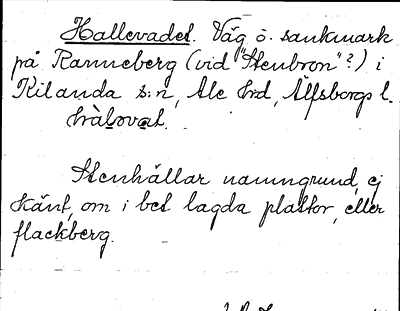 Hallevadet. Väg ö. sankmark
på Ranneberg (vid "Stenbron"?) i
Kilanda s:n, Ale hrd, Älfsborgs l.
Stenhällar namngrund, ej
känt, om i bet lagda plattor, eller
flackberg.